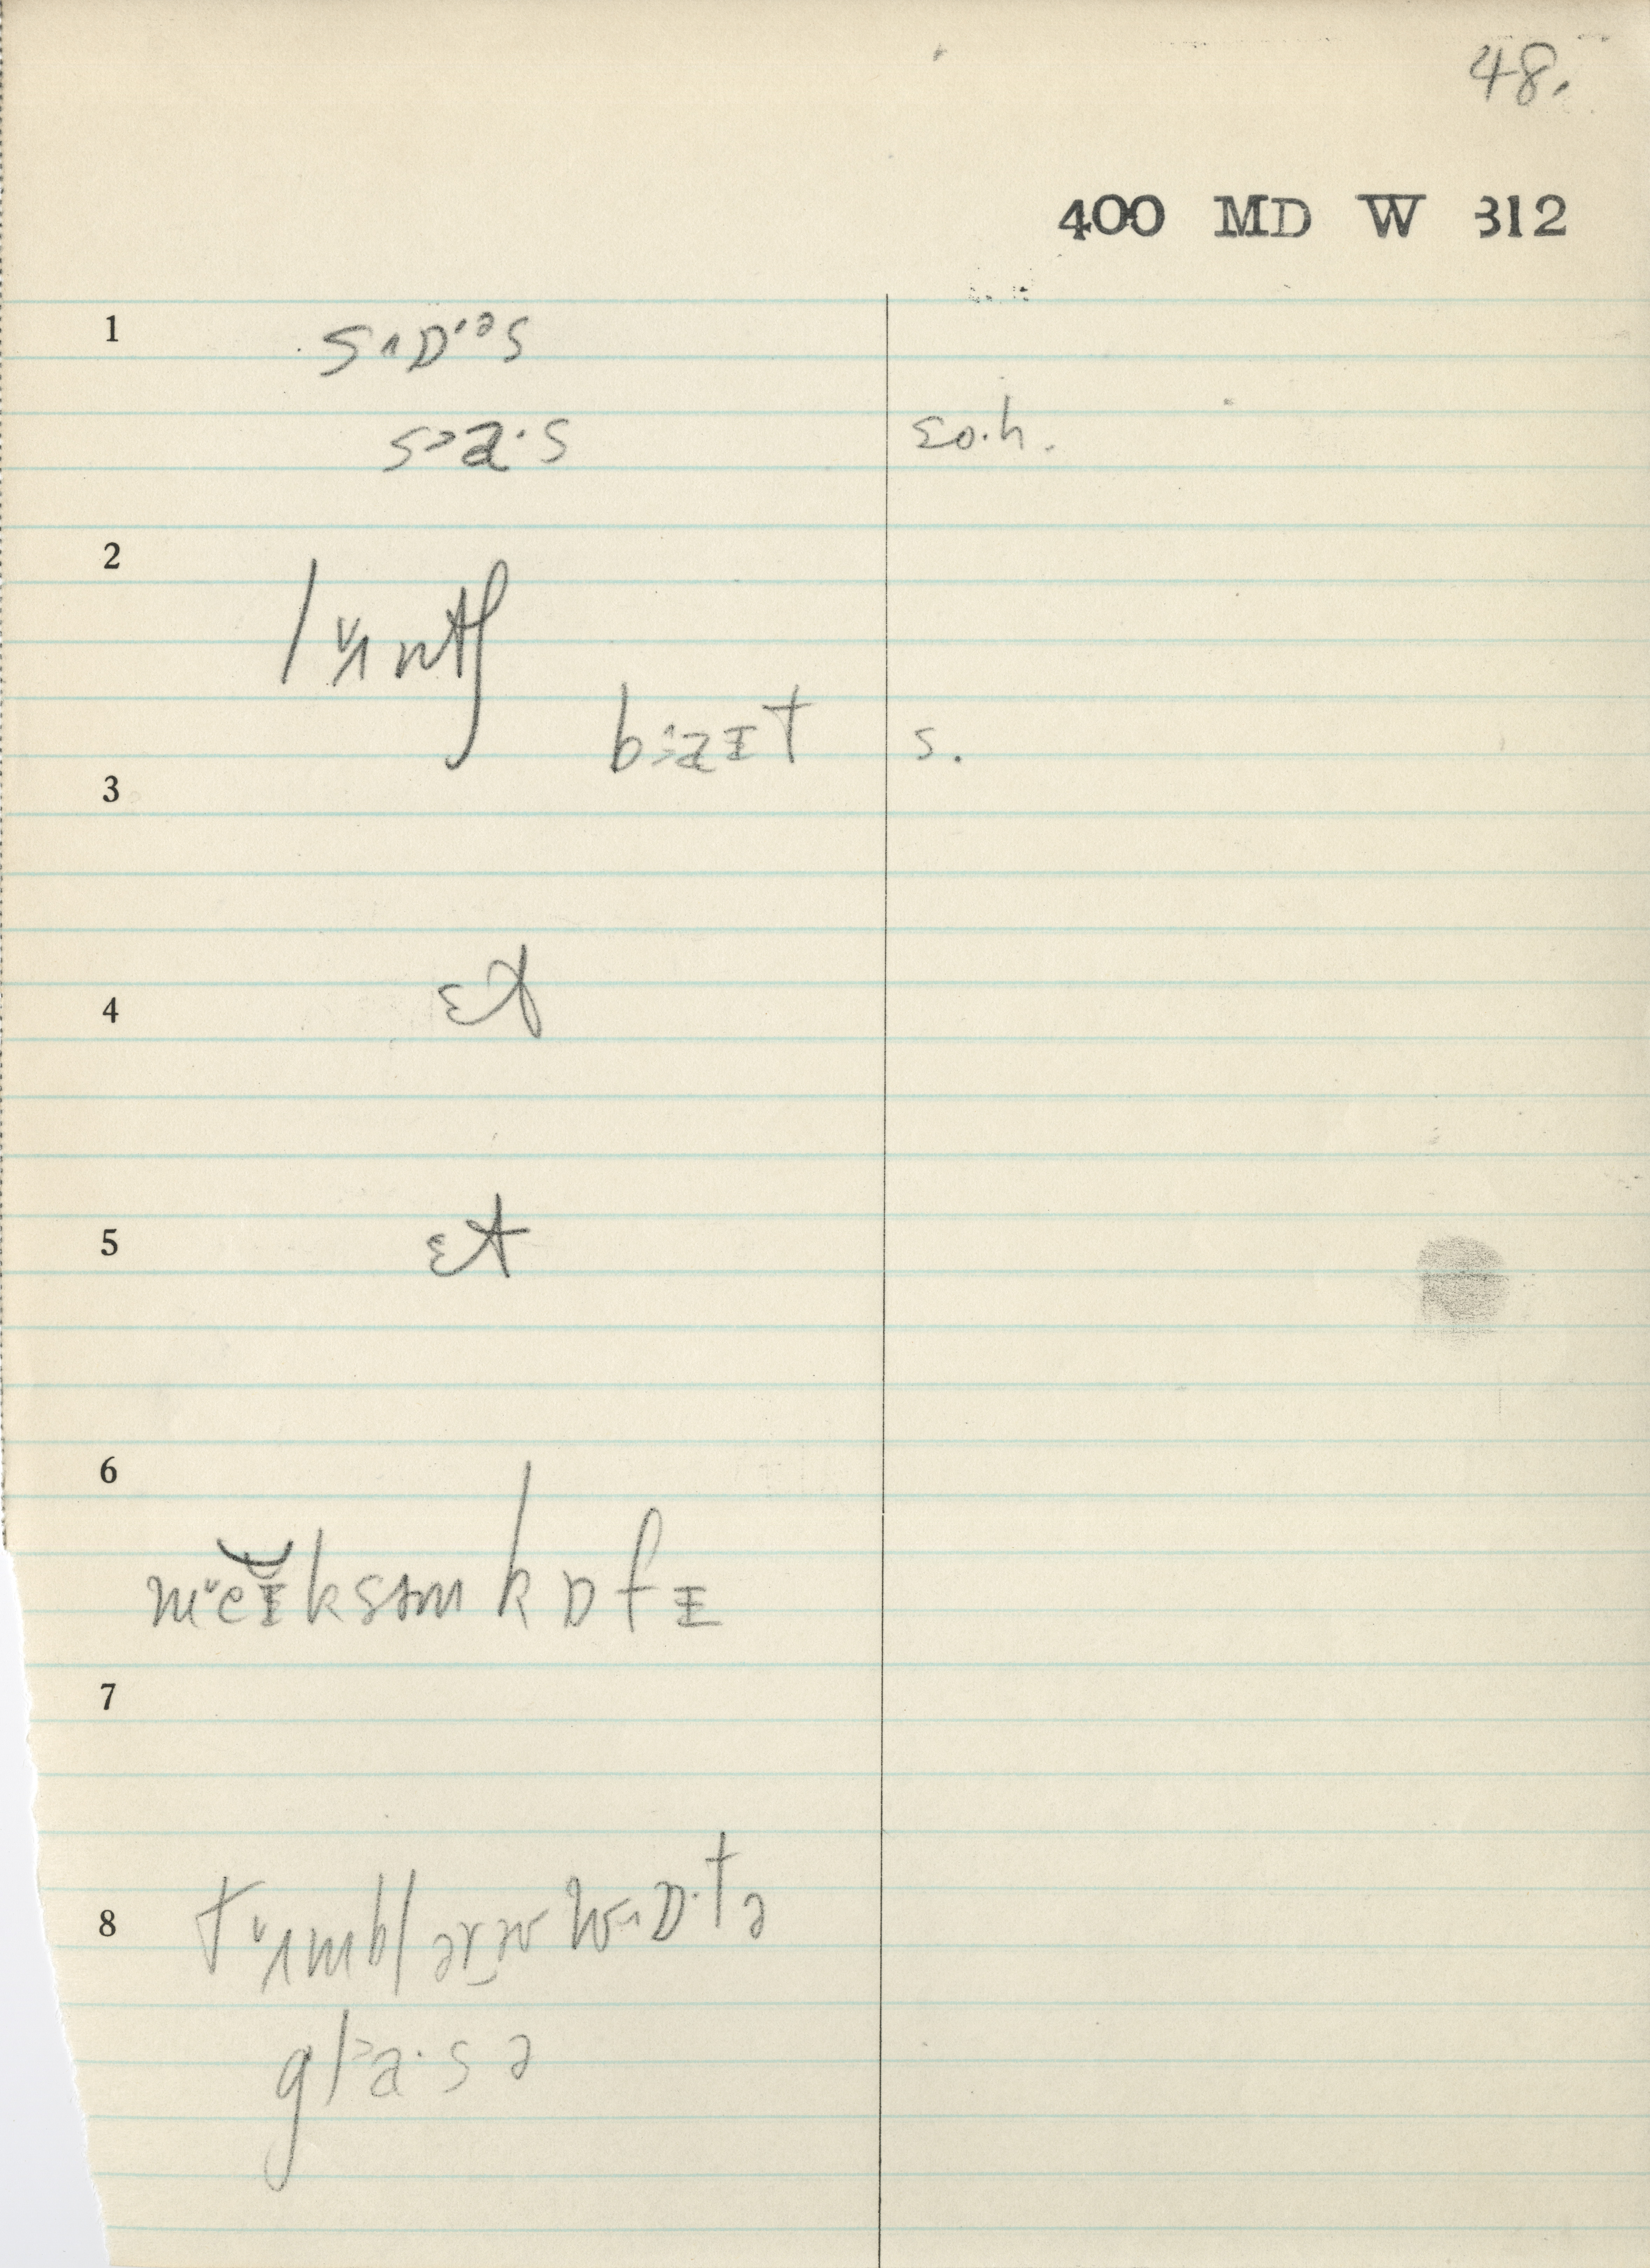 48.
400 MD W 312
1 s˄ɒ˒ᵊs
s˃a·s ɛo.h.
2 lʌ˅ntʃ
b˃aɪt s.
3
4 ɛt
5 ɛt
6 m˅eɪksəm kɒfɪ
7
8 tʌ˅mblərz w˄ɒ·tə
gl˃a·s ə